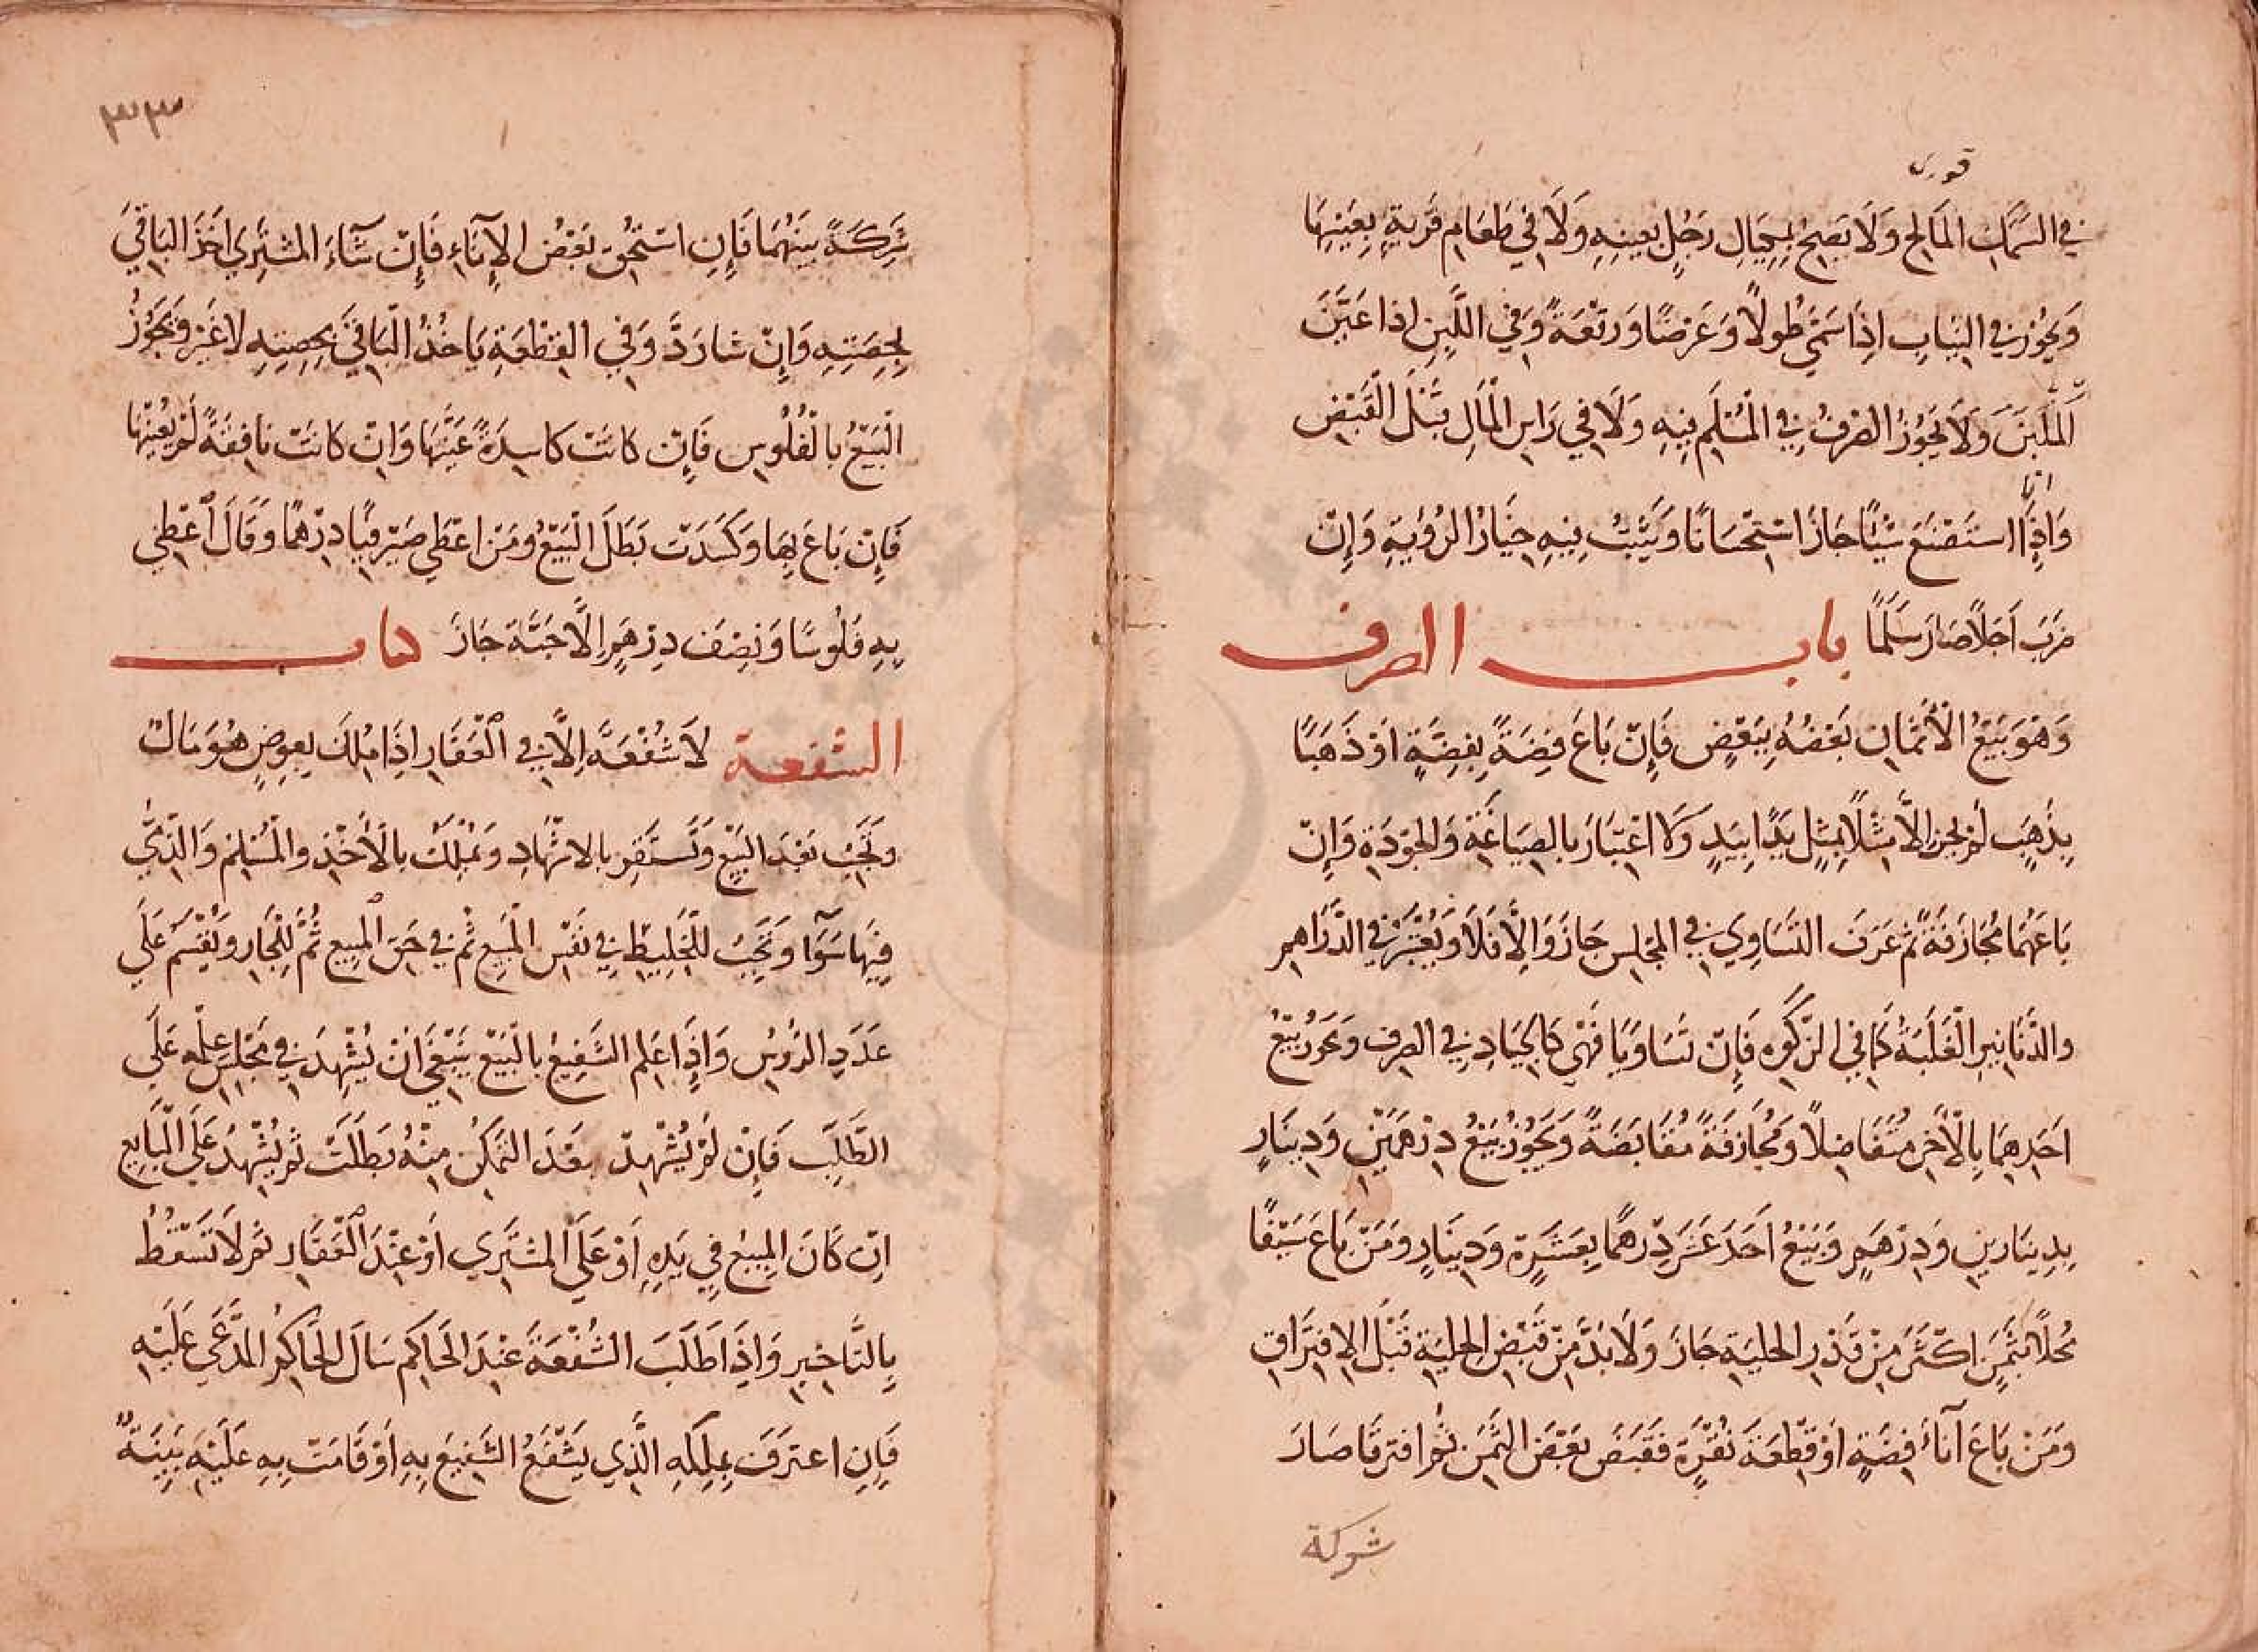 في السَّمَكِ المَالِحِ وَلَا يَصِحُّ بِمِكْيَالِ رَجُلٍ بِعينِهِ وَلَا فِي طَعَامِ قَريةٍ بِعَيْنِهَا
وَيَجُوزُ في الثِيَابِ اِذَا سَمَّى طُولاً وَعَرْضًا وَرقْعَةً وَفي اللَّبِنِ اِذا عَيَّنَ
اَلمَلْبَنَ وَلَا يَجُوزُ التصرفُ فِي الْمُسْلَمِ فِيهِ وَلَا فِي رَاسِ الْمَالِ قَبْلَ الْقَبْضِ
وَاِذَا اسْتَصْنَعَ شَيْئًا جَازَ اسْتِحْسَانًا وَيَثْبُتُ فِيهِ خِيَارُ الرُؤْيَةِ وَاِنْ
ضَرَبَ اَجَلاً صَارَ سَلَمًا باب الصرف
وَهُوَ بَيْعُ الْأَثْمَانِ بَعْضُهُ بِبَعْضٍ فَاِنْ بَاعَ فِضَةً بِفِضَّةٍ اَوْ ذَهَبًا
بِذَهَبٍ لَمْ يجز اِلاَّ مِثْلاً بِمِثْلٍ يَدًا بِيَدٍ وَلَا اعْتِبَارَ بالصِيَاغَةِ وَالجَوْدَةِ وَاِنْ
بَاعَهُمَا مُجَازَفَةً ثُمَّ عَرَفَ التَّسَاوِي فِي المَجْلِسِ جَازَ وَاِلاَّ فَلَا وَيُعْتَبَرُ فِي الدَّرَاهِمِ
والدَّنَانِيرِ الْغَلَبَةُ كَمَا فِي الزَكوةِ فَاِنْ تَسَاوَيَا فَهْيَ كَالجِيَادِ فِي الصرفِ وَيَجُوزُ بَيْعُ
اَحَدِهِمَا بِالْأَخَرِ مُتَفَاضِلاً وَمُجَازَفَةً مُقَابَضَةً وَيَجُوزُ بَيْعُ دِرْهَمَيْنِ وَدِينَارٍ
بِدِينَارينِ وَدِرْهَمٍ وَبَيْعُ اَحَدَ عَشَرَ دِرْهمًا بِعَشَرَةٍ وَدِينَارٍ وَمَنْ بَاعَ سَيْفًا
مُحَلاًّ بِثَمَنٍ اكْثَرَ مِنْ قَدْرِ الحليَةِ جَازَ وَلَا بُدَّ مِنْ قَبْضِ الحِليَةِ قَبْلَ الاِفتِرَاقِ
وَمَنْ بَاعَ آنَاءَ فِضَةٍ اَوْ قِطْعَةَ نُقْرَةٍ فَقَبَضَ بَعْضَ الثَّمَنِ ثُمَّ افترقَا صَارَ
شركة
٣٣
شَرِكَةً بَيْنَهُمَا فَاِنِ اسْتُحِقَ بَعْضُ الاِنَاءِ فَاِنْ شَآءَ المشتَرِي اَخَذَ البَاقِيَ
بِحِصَتِهِ وَاِنْ شا رَدَّ وَفي القِطْعَةِ يَاخُذُ الْبَاقيَ بِحِصَتِهِ لا غَيْر وَيَجُوزُ
الْبَيْعُ بالْفُلُوسِ فَاِنْ كَانَت كاسِدَةً عَيَّنَهَا وَاِنْ كَانَتْ نَافِقَةً لَمْ يُعَيِّنْهَا
فَاِنْ بَاعَ بِهَا وَكَسَدَتْ بَطَلَ الْبَيْعُ وَمَنْ اعْطَى صَيْرَفيًا دِرْهَمًا وَقَالَ اَعْطِنِي
بِهِ فَلُوسًا وَنِصْفَ دِرْهَمٍ اِلاَّ حَبَّةَ جَازَ كتاب
الشفعة لَا شُفْعَةَ اِلاَّ فِي الْعَقَارِ اِذَا مُلِكَ بِعِوِضٍ هُوَ مَالٌ
وَتَجِبُ بَعْدَ البَيْعِ وَتَسْتَقِر بالاِشْهَادِ وَتُمْلَكُ بالْأَخْذِ والْمُسْلِمُ وَالذِّمِّيُّ
فِيَها سَوَآ وَتَجِبُ للخَلِيطِ فِي نَفْسِ المَبِيعِ ثُمَّ فِي حَقِ الْمَبِيعِ ثُمَّ لِلْجَارِ وَتُقْسَمُ عَلَى
عَدَدِ الرُؤسِ وَاِذَا عَلِمَ الشَفِيعُ بِالْبَيْعِ يَنْبَغِي اَنْ يُشْهِدَ فِي مَجْلِسِ عِلْمِهِ عَلَى
الطَّلَبِ فَاِنْ لَمْ يُشْهِدْ بَعْدَ التمَكُنِ مِنْهُ بَطَلَتْ ثُمَّ يُشْهِدُ عَلَى الْبَايِعِ
اِنْ كَانَ الْمبِيْعُ فِي يَدِهِ اَوْ عَلَى المُشتَرِي اَوْ عِنْدَ الْعَقَارِ ثُمَّ لَا تَسْقُطُ
بِالتَّاخِيرِ وَاِذَا طَلَبَ الشُفْعَةَ عِنْدَ الحَاكِمِ سَالَ الحَاكِمُ المدَّعَى عَلَيْهِ
فَاِنِ اعترَفَ بِمِلكِهِ الَّذِي يَشْفَعُ الشَفِيْعُ بِهِ اَوْ قَامَتْ بِهِ عَلَيْهِ بَيِنَةٌ